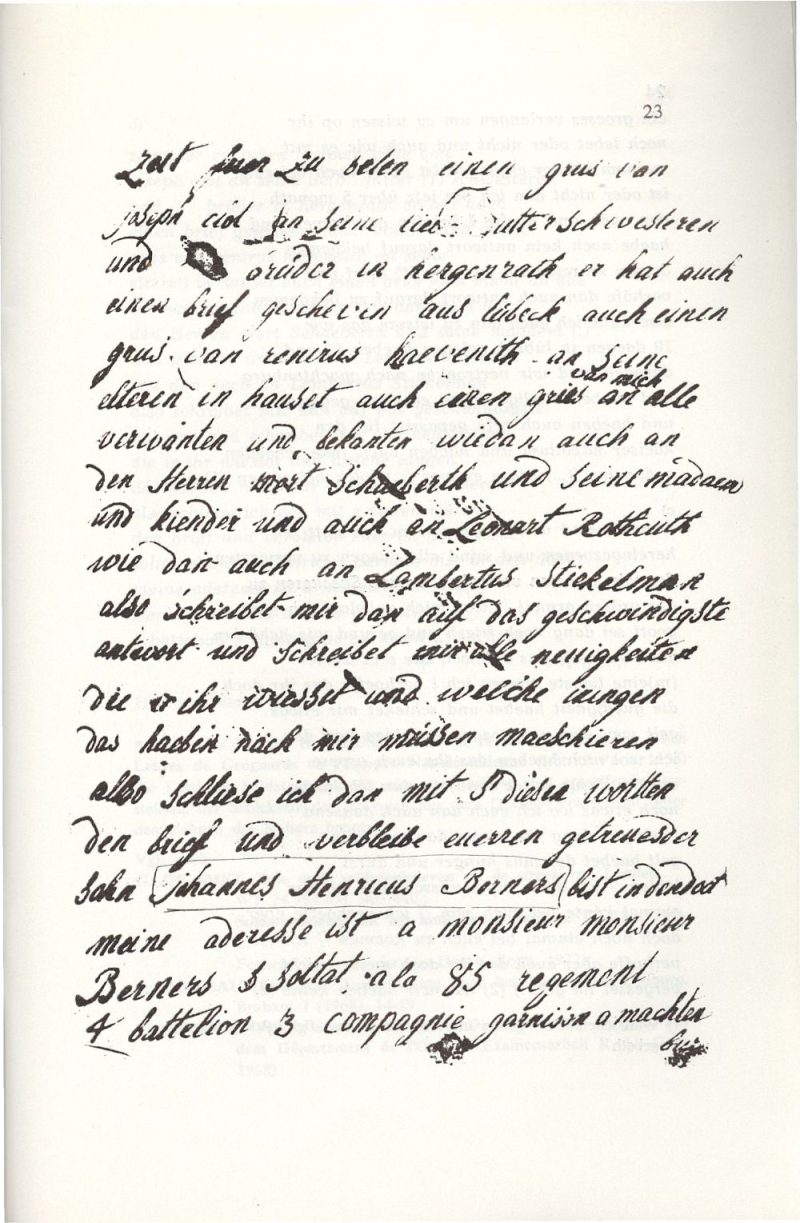 23
zeit fuer zu belen einen grus van
joseph ciol an seine liebe mutter schwesteren
und brúder in hergenrath er hat auch
einen brief gescheven aus lúbeck auch einen
grus van renirus haevenith an seine
elteren in hauset auch einen grúes van mich an alle
verwanten und bekanten wiedan auch an
den Herren mort Schueberth und seine madaem
und kiender und auch an Leonart Rothcuth
wie dan auch an Lambertus Stickelman
also schreibet mir dan auf das geschwindigste
antwort und schreibet mir alle neuigkeiten
die ihr wiesset und welche iungen
das haebin nach mir mússen maeschieren
also schliese ich dan mit diesen wortten
den brief und verbleibe euerren getreuesder
sohn johannes Henricus Berners bist in den dot
meine aderesse ist a monsieur monsieur
Berners soltat a la 85 regement
4 battelion 3 compagnie garnison a machten
bur